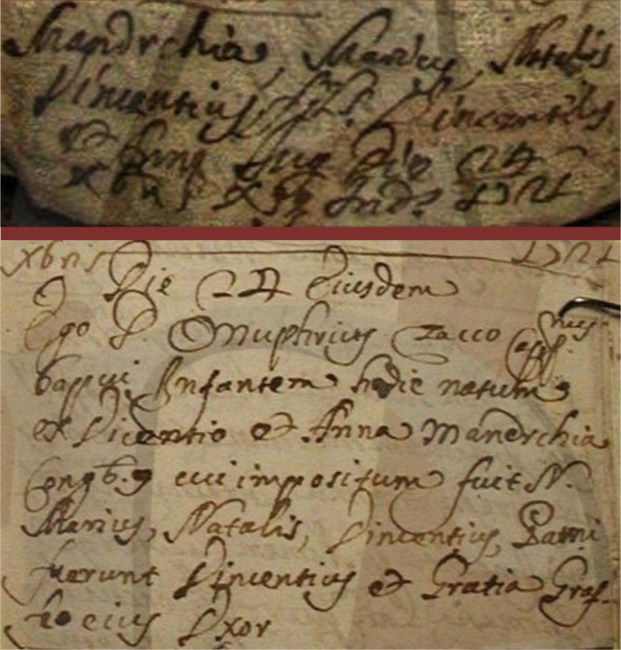 Mandrchia Marius, Natalis
Vincentius, fil. Vincentius
et Ann Jug die 24
xbris Ind. 1721
xbris 1721
Die 24 Eiusdem
Ego D. Onuphrius Zacco Capp.nus
bapp.vi Infantem hodie natum
ex Vicentio et Anna Mandrchia
Congb.9 cui impositum fuit N.
Marius, Natalis, Vincentius, Patrini
fuerunt Vincentius et Gratia Gras-
so eius Uxor